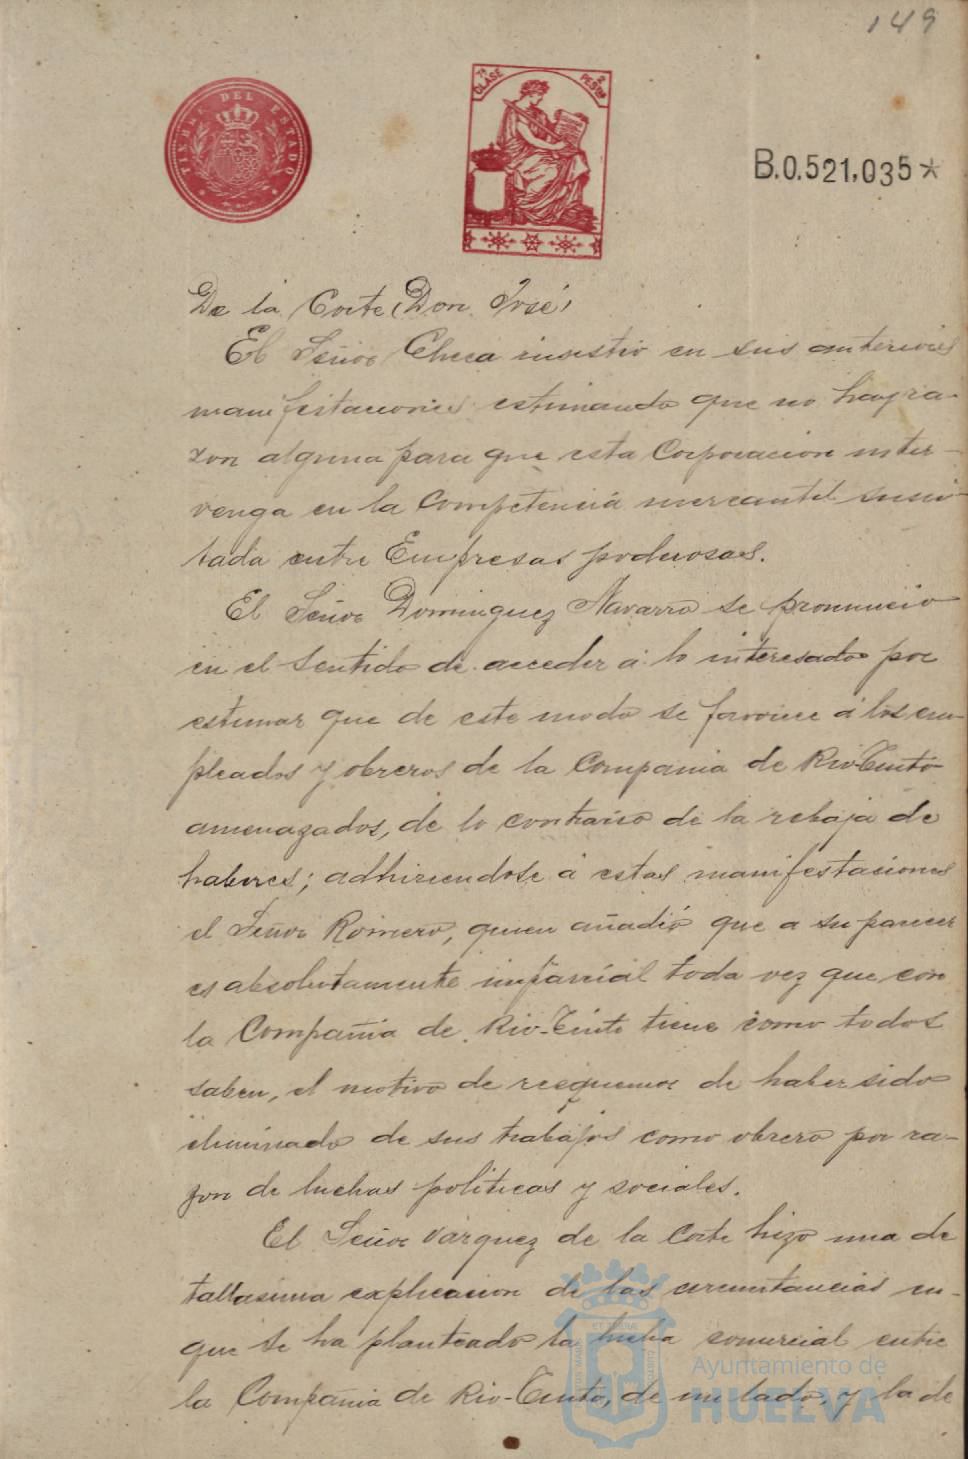 149
TIMBRE DEL ESTADO
7ª CLASE
2 PESETAS
B.0.521,035*
De la Corte (Don José)
El Señor Checa insistió en sus anteriores
manifestaciones estimando que no hay ra-
zon alguna para que esta Corporacion inter-
venga en la competencia mercantil susci-
tada entre Empresas poderosas.
El Señor Dominguez Navarro se pronunció
en el sentido de acceder á lo interesado por
estimar que de este modo se favorece á los em-
pleados y obreros de la Compañia de Rio-Tinto
amenazados, de lo contrario de la rebaja de
haberes; adhiriendose á estas manifestaciones
el Señor Romero, quien añadió que a su parecer
es absolutamente imparcial toda vez que con
la Compañia de Rio-Tinto tiene como todos
saben, el motivo de resquemor de haber sido
eliminado de sus trabajos como obrero por ra-
zon de luchas politicas y sociales.
El Señor Vazquez de la Corte hizo una de
tallasima explicacion de las circunstancias en
que se ha planteado la lucha comercial entre
la Compañia de Rio-Tinto, de un lado, y la de
Ayuntamiento de
HUELVA